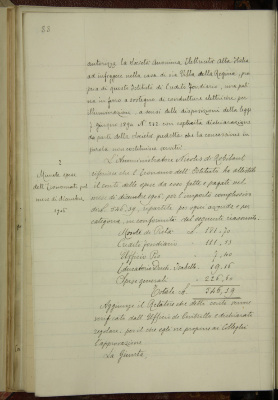 82
autorizza la Società Anonima Elettricità Alta Italia
ad infiggere nella casa di via Villa della Regina, pro
pria di questo Istituto di Credito Fondiario, una pal
ina in ferro a sostegno di conduttura elettrica per
illuminazione, a sensi delle disposizioni della legge
7 giugno 1894 N. 232 con esplicita dichiarazione
da parte della Società predetta che la concessione in
parola non costituisce servitù.
2
Minute spese
dell'Economato pel
mese di Dicembre
1905
L'Amministratore Nicolis di Robilant
riferisce che l'Economo dell'Istituto ha allestito
il conto delle spese da esso fatte e pagate nel
mese di dicembre 1905, per l'importo complessivo
di L. 546,29, ripartito per opere e
categoria, in conformità del seguente riassunto:
Monte di Pietà L. 181.70
Credito fondiario 111.13
Ufficio Pio 7.40
Educatorio Duch. Isabella 19.16
Spese generali 226.80
Totale L. 546,29
Aggiunge il Relatore che detto conto venne
verificato dall'Ufficio di Controllo e dichiarato
regolare, per il che egli ne propone ai Colleghi
l'approvazione.
La Giunta,